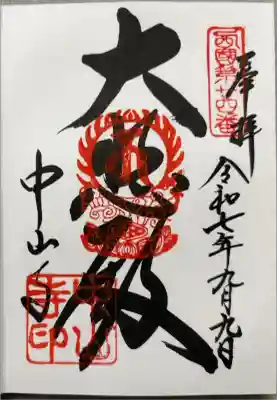 奉拝
西國第廿四番
令和七年九月九日
大悲殿
中山寺
中山寺印